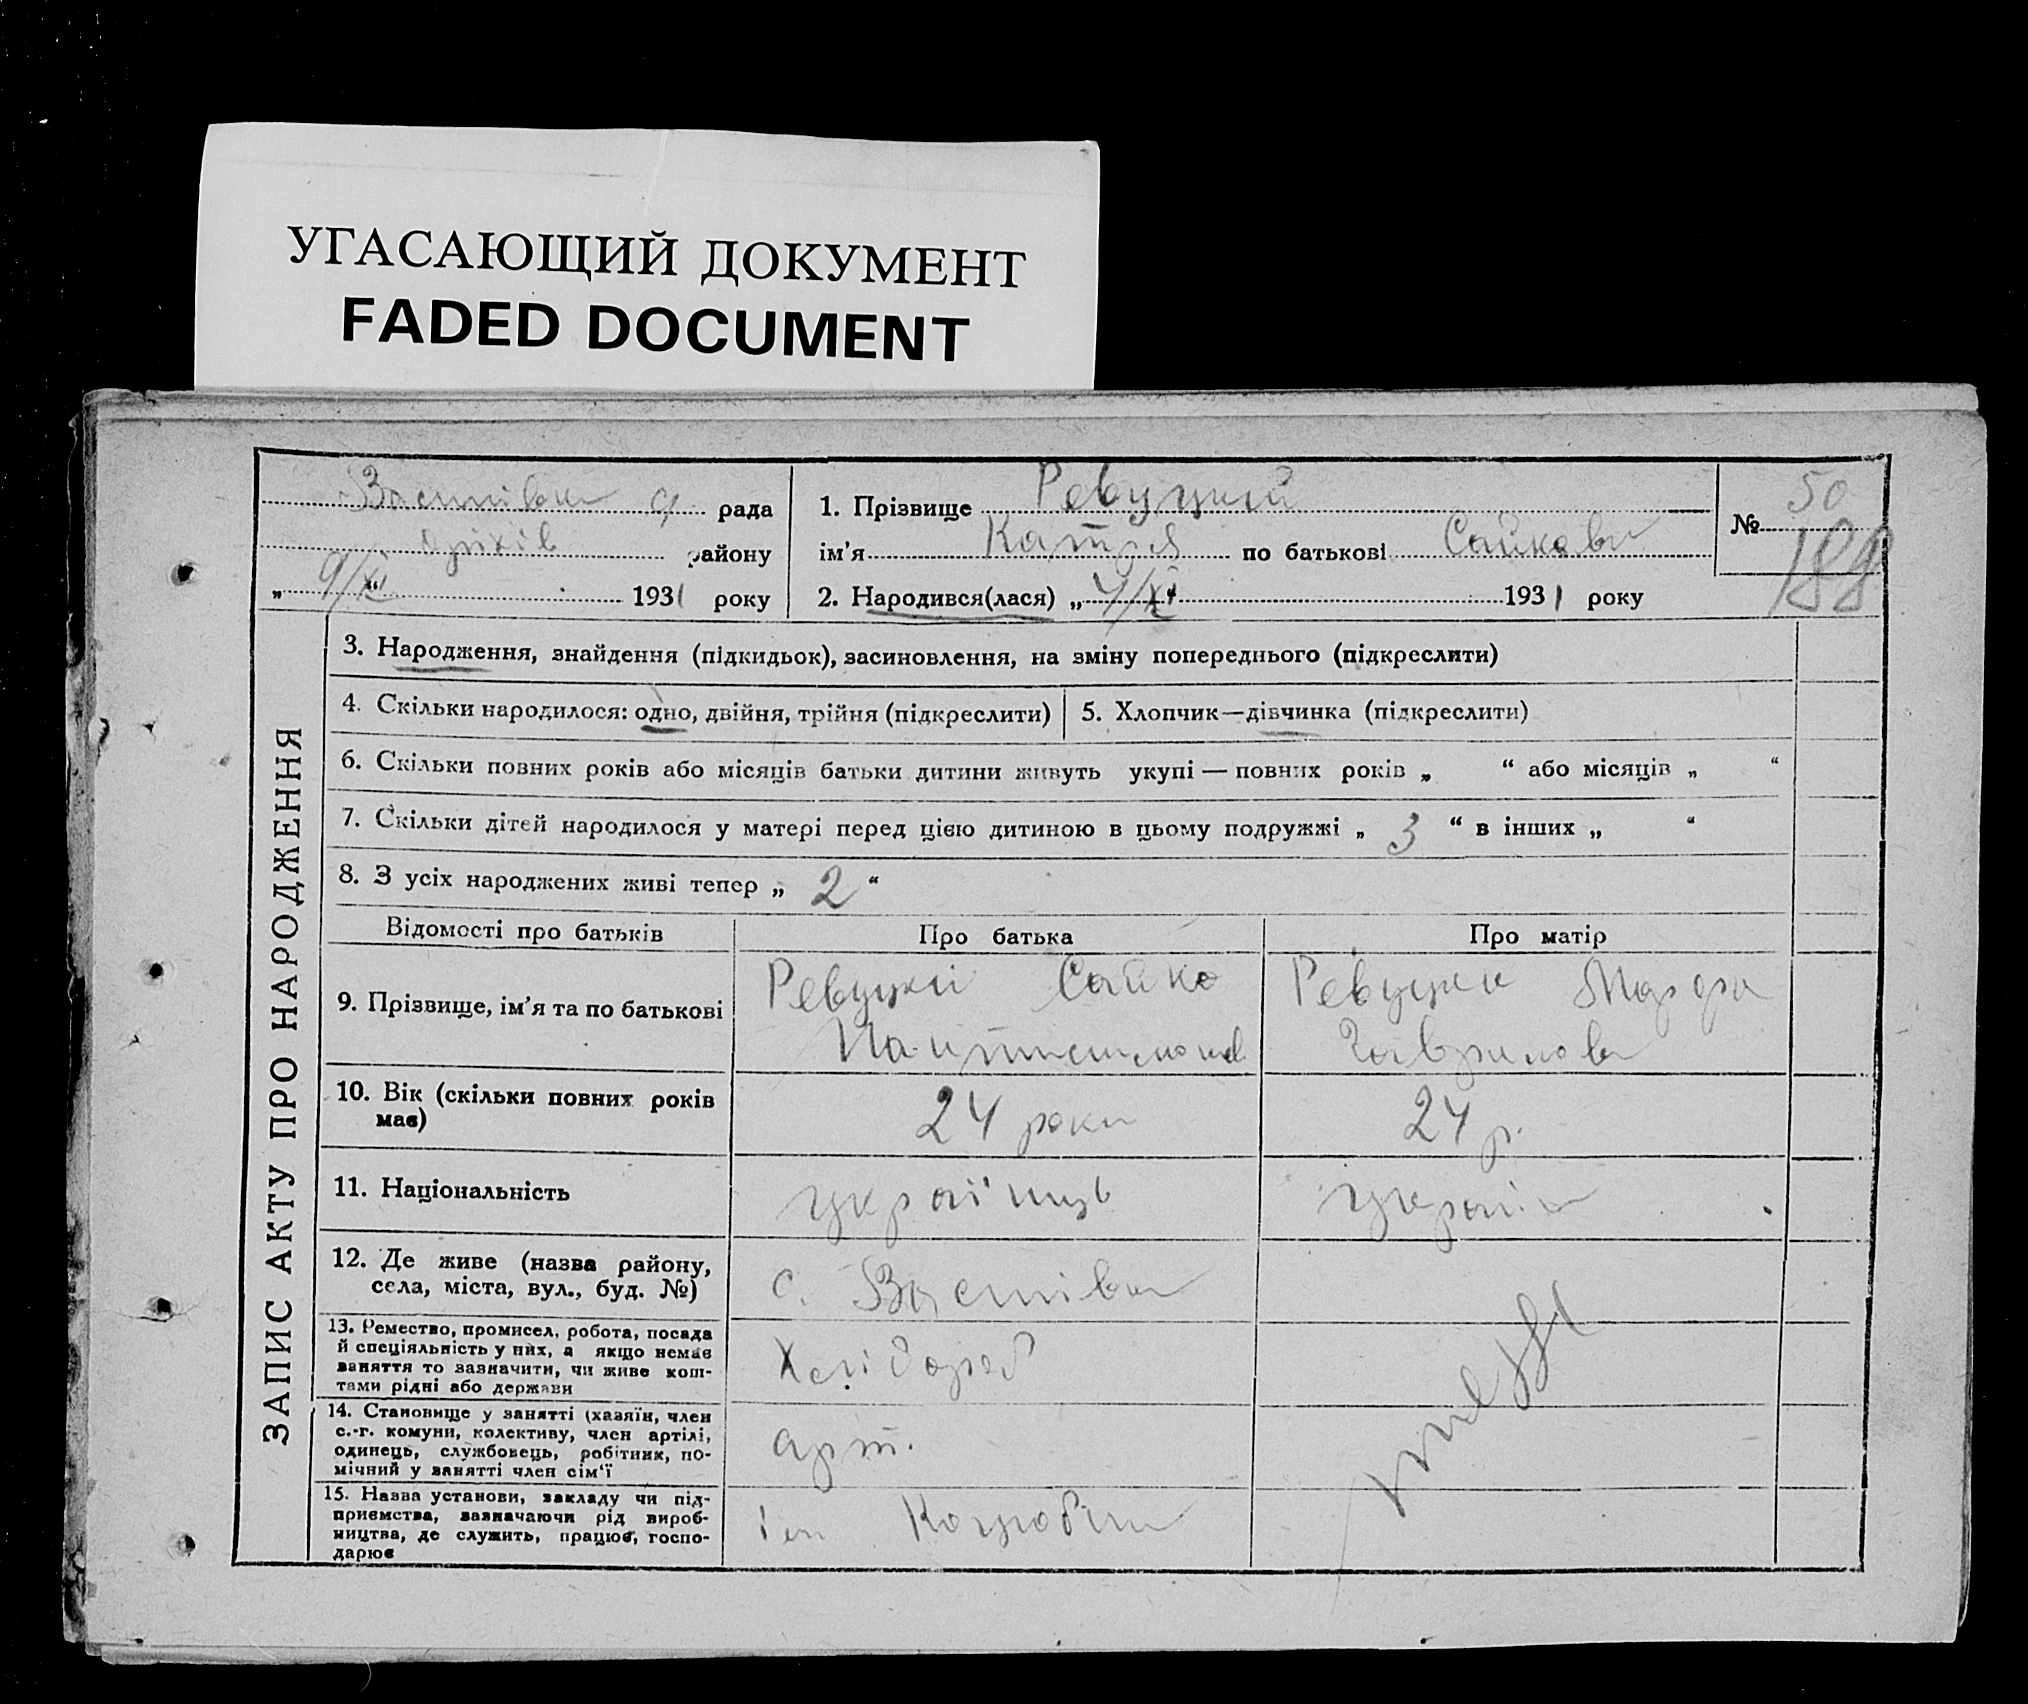 УГАСАЮЩИЙ ДОКУМЕНТ
FADED DOCUMENT
рада
району
„ 9/XI “ 1931 року
1. Прізвище Ревуцкій
ім’я Катря по батькові Сайкова
2. Народився(лася) „ 4/XI “ 1931 року
№ 50
188
ЗАПИС АКТУ ПРО НАРОДЖЕННЯ
3. Народження, знайдення (підкидьок), засиновлення, на зміну попереднього (підкреслити)
4. Скільки народилося: одно, двійня, трійня (підкреслити)
5. Хлопчик—дівчинка (підкреслити)
6. Скільки повних років або місяців батьки дитини живуть укупі — повних років „ “ або місяців „ “
7. Скільки дітей народилося у матері перед цією дитиною в цьому подружжі „ 3 “ в інших „ “
8. З усіх народжених живі тепер „ 2 “
Відомості про батьків
Про батька
Про матір
9. Прізвище, ім’я та по батькові
Ревуцкій Сайко
Ревуцка Марфа
Гаврилова
10. Вік (скільки повних років
має)
24 роки
24 р.
11. Національність
українць
україн
12. Де живе (назва району,
села, міста, вул., буд. №)
с.
13. Ремество, промисел, робота, посада
й спеціяльність у них, а якщо немає
заняття то зазначити, чи живе кош-
тами рідні або держави
Хлібороб
14. Становище у занятті (хазяїн, член
с.-г. комуни, колективу, член артілі,
одинець, службовець, робітник, по-
мічний у занятті член сім’ї
арт.
15. Назва установи, закладу чи під-
приємства, зазначаючи рід вироб-
ництва, де служить, працює, госпо-
дарює
ім Коцюбин